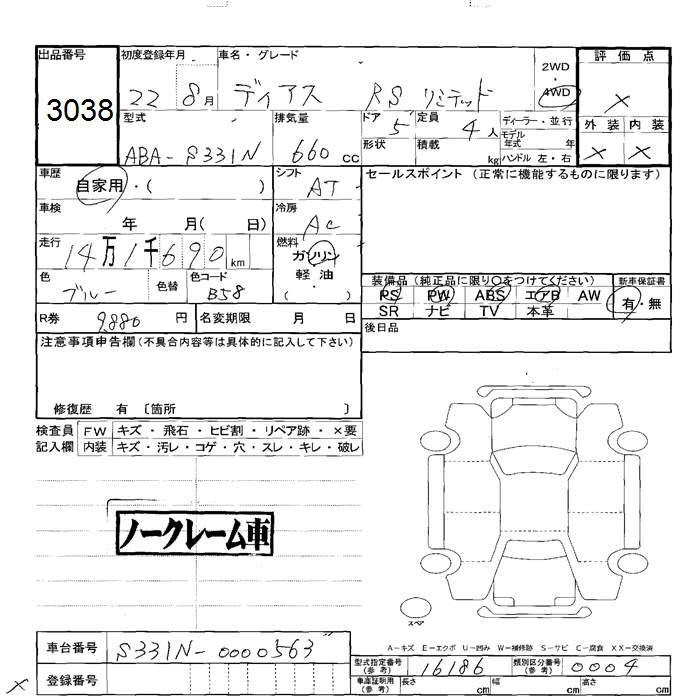 出品番号
3038
初度登録年月
22 8月
車名・グレード
ディアス RS リミテッド
2WD
4WD
評価点
×
型式
ABA-S331N
排気量
660 cc
ドア
5
定員
4人
ディーラー・並行
モデル
年式 年
形状
積載
kg
ハンドル 左・右
外装 内装
× ×
車歴
自家用・( )
シフト
AT
セールスポイント (正常に機能するものに限ります)
車検
年 月( 日)
冷房
AC
走行
14万1千690km
燃料
ガソリン
軽油
( )
色
ブルー
色替
色コード
B58
装備品 (純正品に限り○をつけてください)
新車保証書
PS PW ABS エアB AW
有・無
SR ナビ TV 本革
R券 9,880円
名変期限 月 日
後日品
注意事項申告欄(不具合内容等は具体的に記入して下さい)
修復歴 有〔箇所 〕
検査員 FW キズ・飛石・ヒビ割・リペア跡・×要
記入欄 内装 キズ・汚レ・コゲ・穴・スレ・キレ・破レ
ノークレーム車
スペア
A−キズ E−エクボ U−凹み W−補修跡 S−サビ C−腐食 XX−交換済
車台番号 S331N-0000563
型式指定番号
(参考)
16186
類別区分番号
(参考)
0004
登録番号
車庫証明用
(参考)
長さ cm
幅 cm
高さ cm
×